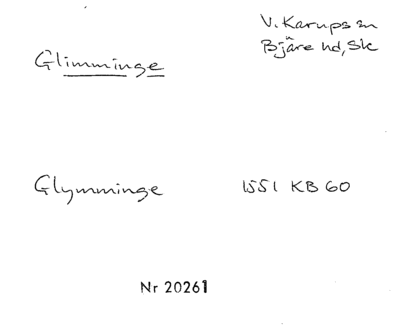 V. Karups sn
Bjäre hd, Sk
Glimminge
Glymminge 1551 KB 60
Nr 20261